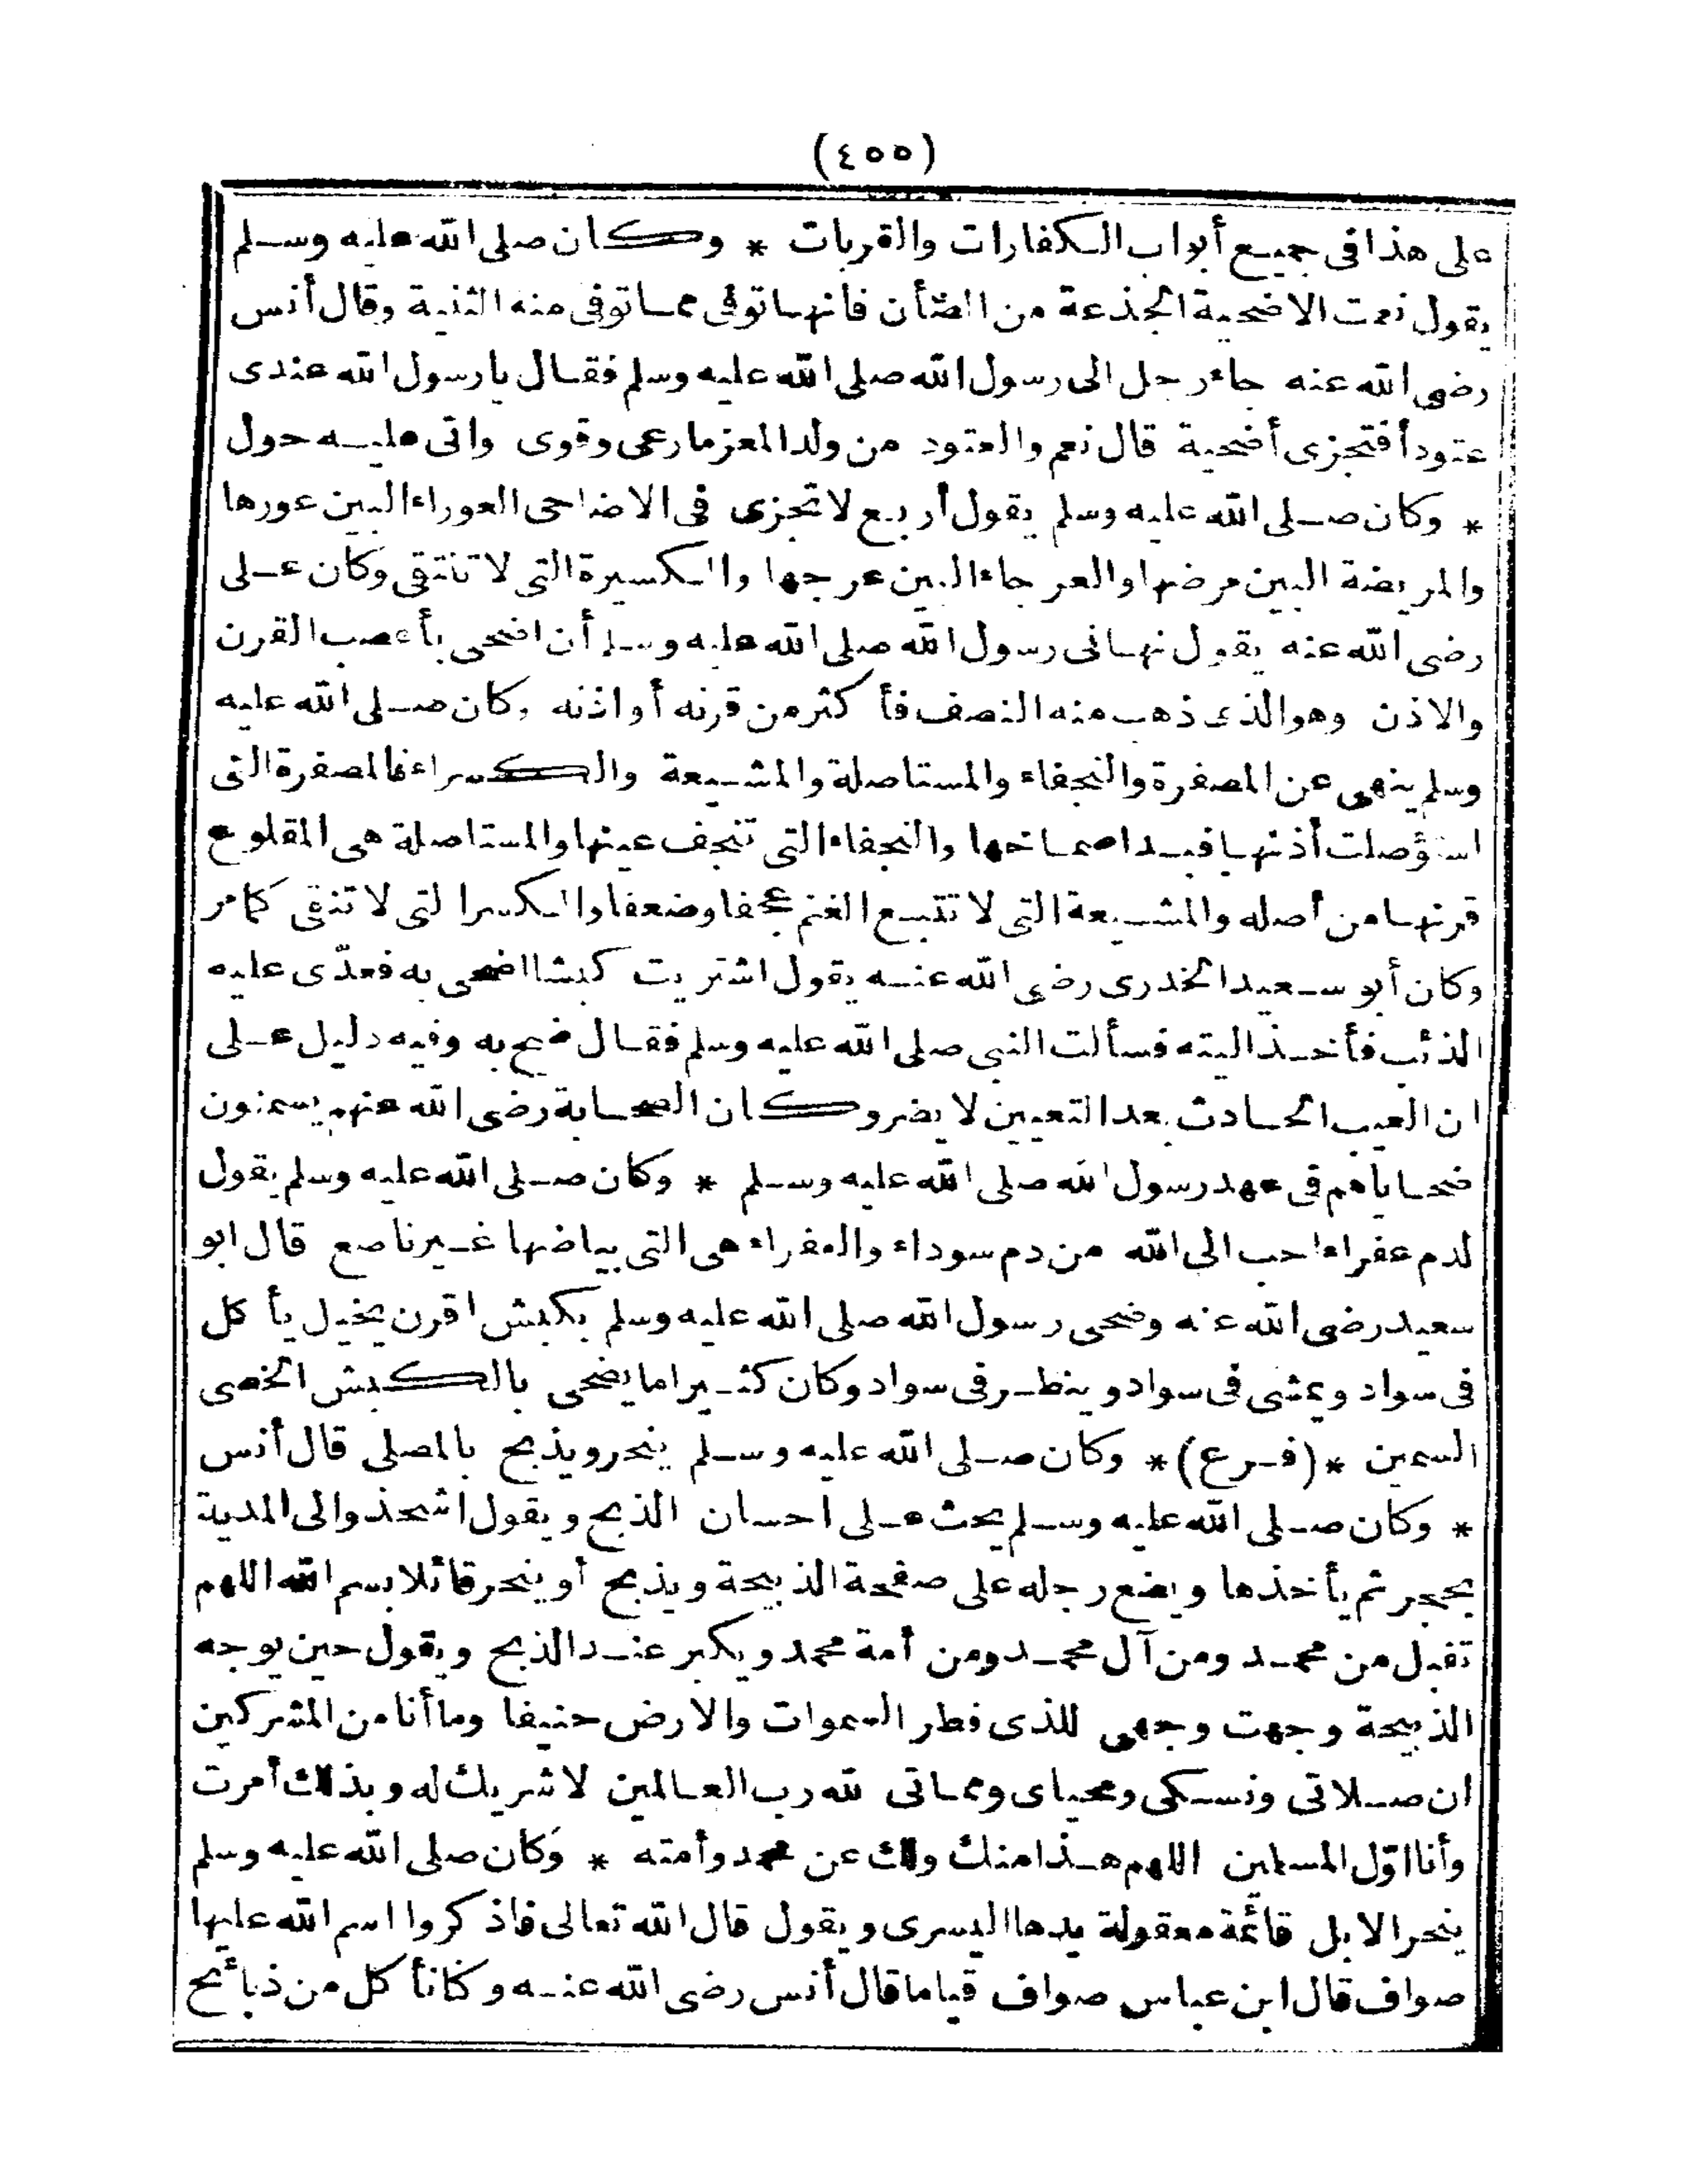 (٤٥٥)
على هذا فى جميع أبواب الكفارات والقربات * وكان صلى الله عليه وسلم
يقول نعمت الاضحية الجذعة من الضأن فانها توفى مما توفى منه الثنية وقال أنس
رضى الله عنه جاء رجل الى رسول الله صلى الله عليه وسلم فقال يا رسول الله عندى
عتود أفتجزى أضحية قال نعم والعتود من ولد المعز ما رعى وقوى واتى عليه حول
* وكان صلى الله عليه وسلم يقول أربع لا تجزى فى الاضاحى العوراء البين عورها
والمريضة البين مرضها والعرجاء البين عرجها والكسيرة التى لا تنتقى وكان على
رضى الله عنه يقول نهانى رسول الله صلى الله عليه وسلم أن اضحى بأعصب القرن
والاذن وهو الذى ذهب منه النصف فأكثر من قرنه أو اذنه وكان صلى الله عليه
وسلم ينهى عن المصفرة والنجفاء والمستاصلة والمشيعة والكسراء فالمصفرة التى
استؤصلت أذنها فبدا صماخها والنجفاء التى تنجف عينها والمستاصلة هى المقلوع
قرنها من أصله والمشيعة التى لا تتبع الغنم عجفا وضعفا والكسرا التى لا تنقى كما مر
وكان أبو سعيد الخدرى رضى الله عنه يقول اشتريت كبشا اضحى به فعدّى عليه
الذئب فأخذ اليته فسألت النبى صلى الله عليه وسلم فقال ضح به وفيه دليل على
ان العيب الحادث بعد التعيين لا يضر وكان الصحابة رضى الله عنهم يسمنون
ضحاياهم فى عهد رسول الله صلى الله عليه وسلم * وكان صلى الله عليه وسلم يقول
لدم عفراء احب الى الله من دم سوداء والعفراء هى التى بياضها غير ناصع قال ابو
سعيد رضى الله عنه وضحى رسول الله صلى الله عليه وسلم بكبش اقرن فحيل يأكل
فى سواد ويمشى فى سواد وينظر فى سواد وكان كثيرا ما يضحى بالكبش الخصى
السمين *(فرع)* وكان صلى الله عليه وسلم ينحر ويذبح بالمصلى قال أنس
* وكان صلى الله عليه وسلم يحث على احسان الذبح ويقول اشحذوا لى المدية
بحجر ثم يأخذها ويضع رجله على صفحة الذبيحة ويذبح أو ينحر قائلا بسم الله اللهم
تقبل من محمد ومن آل محمد ومن أمة محمد ويكبر عند الذبح ويقول حين يوجه
الذبيحة وجهت وجهى للذى فطر السموات والارض حنيفا وما أنا من المشركين
ان صلاتى ونسكى ومحياى ومماتى لله رب العالمين لا شريك له وبذلك أمرت
وأنا اوّل المسلمين اللهم هذا منك ولك عن محمد وأمته * وكان صلى الله عليه وسلم
ينحر الابل قائمة معقولة يدها اليسرى ويقول قال الله تعالى فاذكروا اسم الله عليها
صواف قال ابن عباس صواف قياما قال أنس رضى الله عنه وكنا نأكل من ذبائح